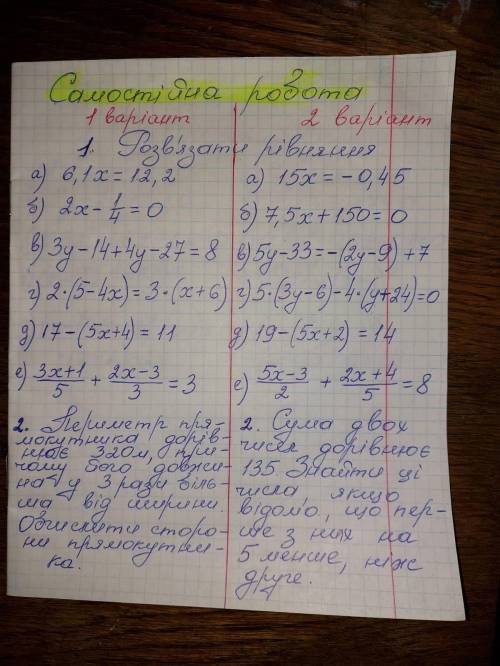 Самостійна робота
1 варіант
2 варіант
1. Розв'язати рівняння
а) 6,1x = 12,2
б) 2x - 1/4 = 0
в) 3y - 14 + 4y - 27 = 8
г) 2·(5 - 4x) = 3·(x + 6)
д) 17 - (5x + 4) = 11
е) (3x + 1)/5 + (2x - 3)/3 = 3
2. Периметр пря-
мокутника дорів-
нює 320м, при-
чому його довжи-
на у 3 рази біль-
ша від ширини.
Обчислити сторо-
ни прямокутни-
ка.
а) 15x = -0,45
б) 7,5x + 150 = 0
в) 5y - 33 = -(2y - 9) + 7
г) 5·(3y - 6) - 4·(y + 24) = 0
д) 19 - (5x + 2) = 14
е) (5x - 3)/2 + (2x + 4)/5 = 8
2. Сума двох
чисел дорівнює
135. Знайти ці
числа, якщо
відомо, що пер-
ше з них на
5 менше, ніж
друге.